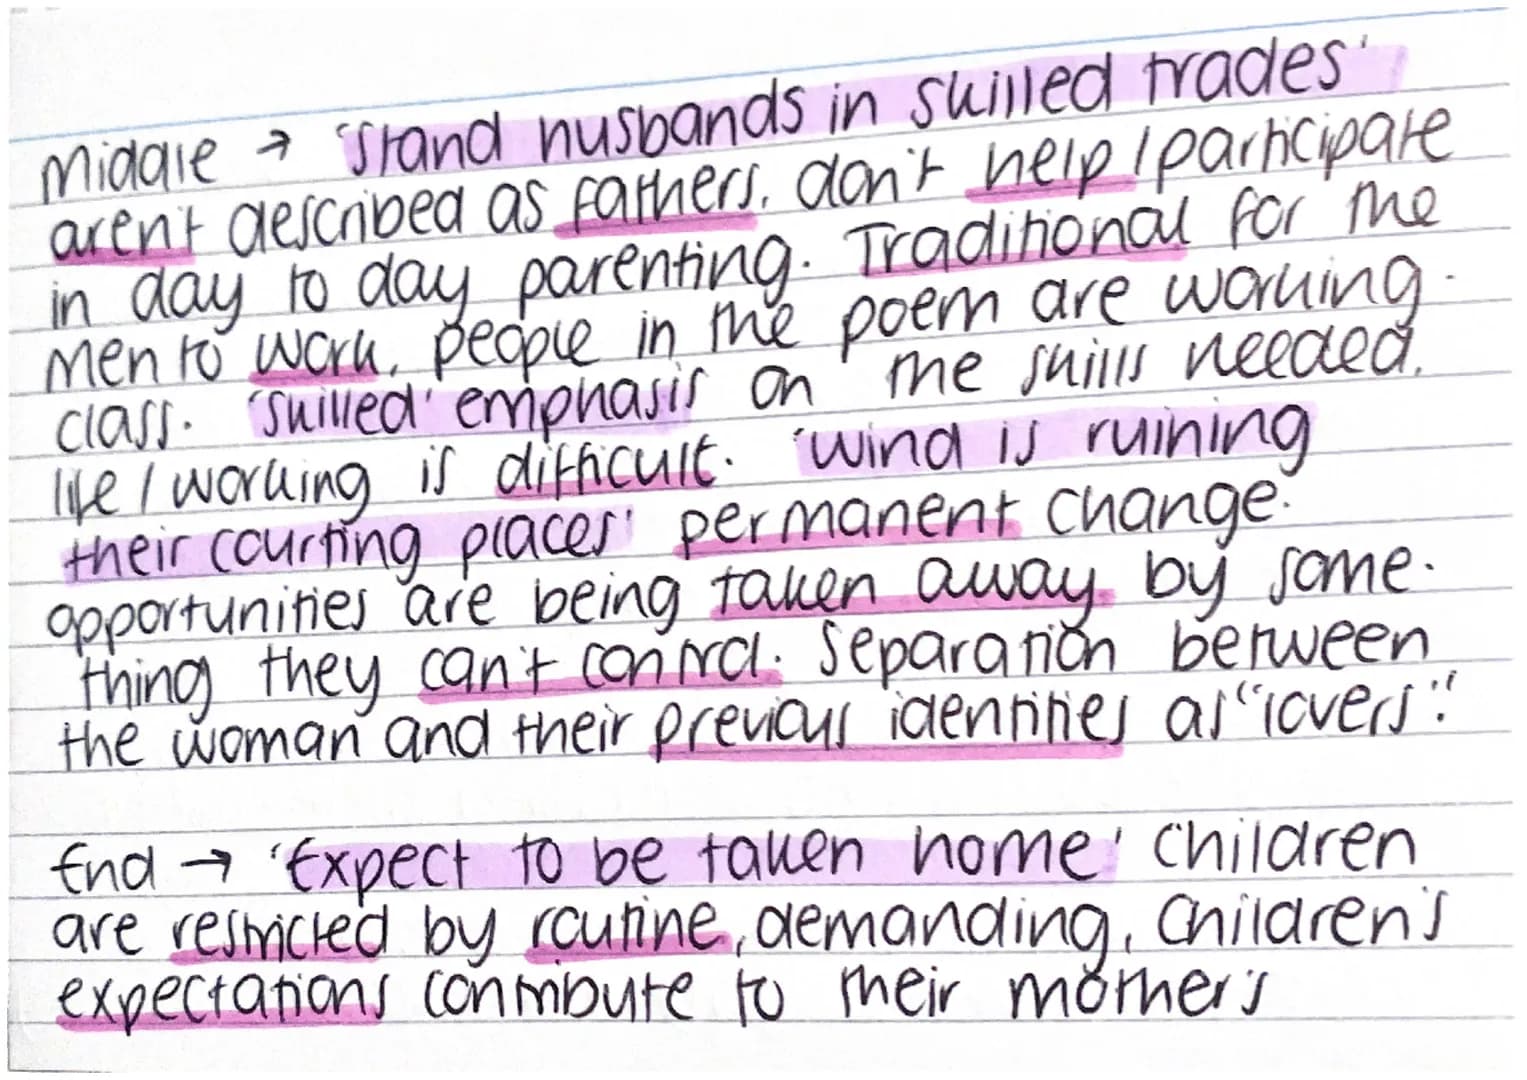 Middle → 'Stand husbands in skilled trades'
aren't described as fathers, don't help / participate
in day to day parenting. Traditional for the
men to work, people in the poem are working.
class. 'skilled' emphasis on the skills needed,
life / working is difficult. 'wind is ruining
their courting places' permanent change.
opportunities are being taken away by some.
thing they can't control. Separation between
the woman and their previous identities as "lovers".
End → 'Expect to be taken home' Children
are restricted by routine, demanding, Children's
expectations contribute to their mother's